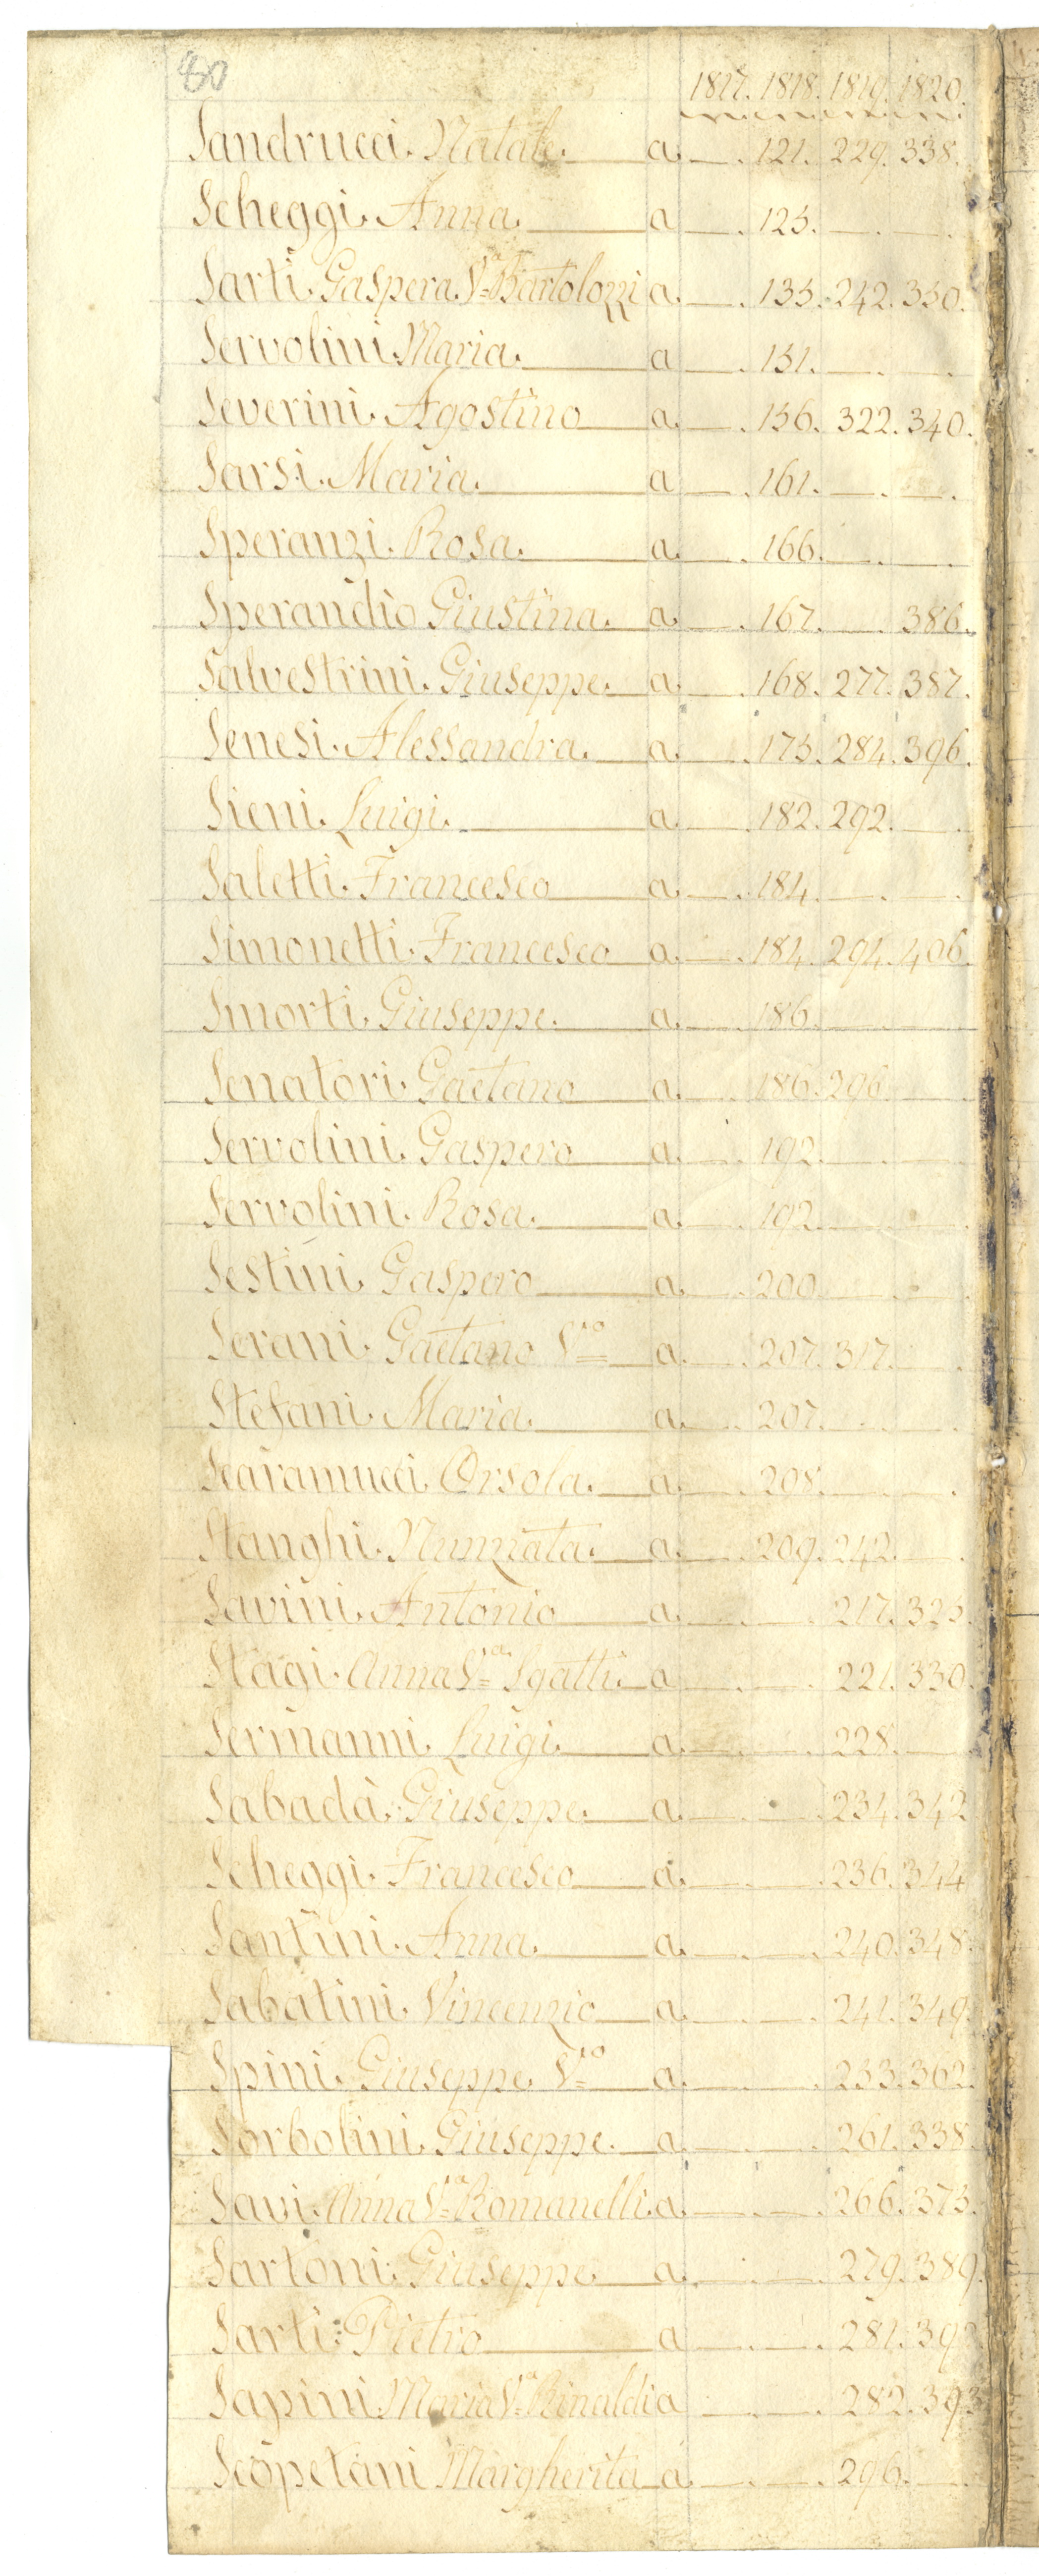 80
1817. 1818. 1819. 1820.
Sandrucci. Natale. a. — . 121. 229. 338.
Scheggi. Anna. a — . 125. — . — .
Sarti. Gaspera Vᵃ Bartolozzi a. — . 135. 242. 350.
Servolini Maria. a — . 151. — . — .
Severini. Agostino a. — . 156. 322. 340.
Sarsi. Maria. a — . 161. — . — .
Speranzi. Rosa. a. — . 166. — . —
Sperandio Giustina. a. — . 167. — . 386.
Salvestrini. Giuseppe. a. — . 168. 277. 387.
Senesi. Alessandra. a. — . 175. 284. 396.
Sieni. Luigi. a. — . 182. 292. — .
Saletti. Francesco a. — . 184. — . — .
Simonetti. Francesco a. — . 184. 294. 406.
Smorti. Giuseppe. a. — . 186. — —
Senatori. Gaetano a. — . 186. 296. —
Servolini. Gaspero a. — . 192. — —
Servolini. Rosa. a. — . 192. — —
Sestini. Gaspero a. — . 200. — — .
Serani. Gaetano Vⁱᵒ a. — . 207. 317. — .
Stefani. Maria. a. — . 207. — . — .
Scaramucci. Orsola. a. — . 208. — — .
Stanghi. Nunziata. a. — . 209. 242. — .
Savini. Antonio a. — . — . 217. 325.
Stagi. Anna Vᵃ Sgatti a — . — . 221. 330.
Sermanni. Luigi. a. — . — . 228. — .
Sabadà. Giuseppe. a. — . — . 234. 342
Scheggi. Francesco a. — . — . 236. 344
Santini. Anna. a. — . — . 240. 348.
Sabatini. Vincenzio a. — . — . 241. 349.
Spini. Giuseppe. Vⁱᵒ a. — . — . 253. 362.
Sorbolini. Giuseppe. a. — . — . 261. 338.
Savi. Anna Vᵃ Romanelli. a. — . — . 266. 373.
Sartoni. Giuseppe. a. — . — . 279. 389.
Sarti. Pietro a — . — . 281. 392
Sapini. Maria Vᵃ Rinaldi a — . — . 282. 393
Scopetani Margherita a — . — . 296. —